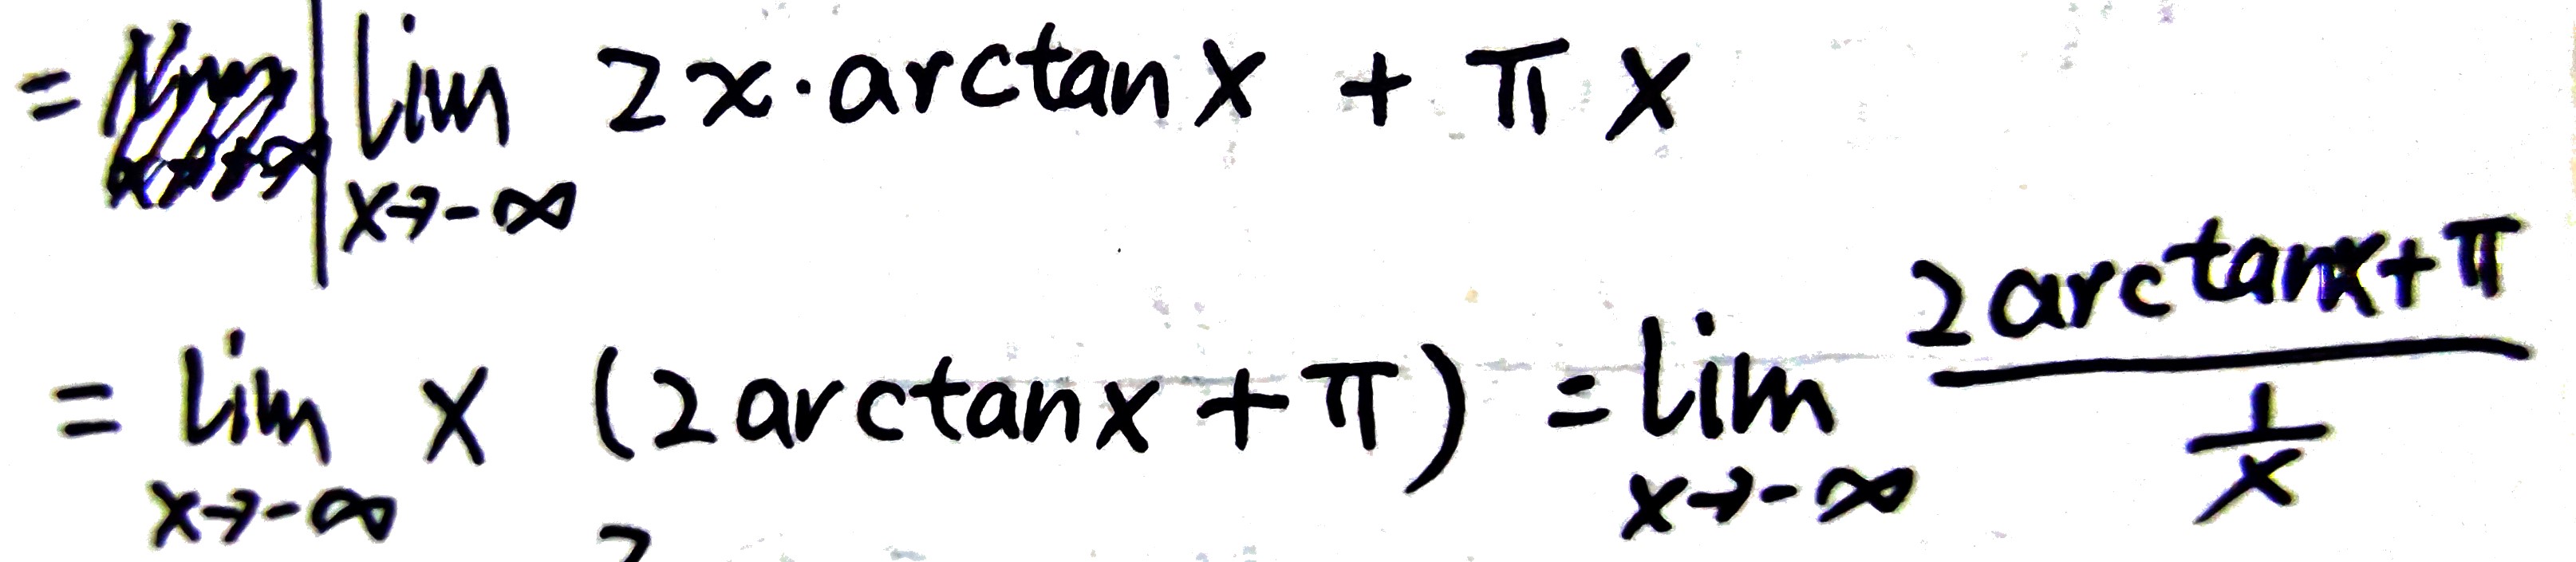 = lim x→-∞ 2x·arctanx + πx
= lim x→-∞ x (2arctanx + π) = lim x→-∞ (2arctanx+π)/(1/x)